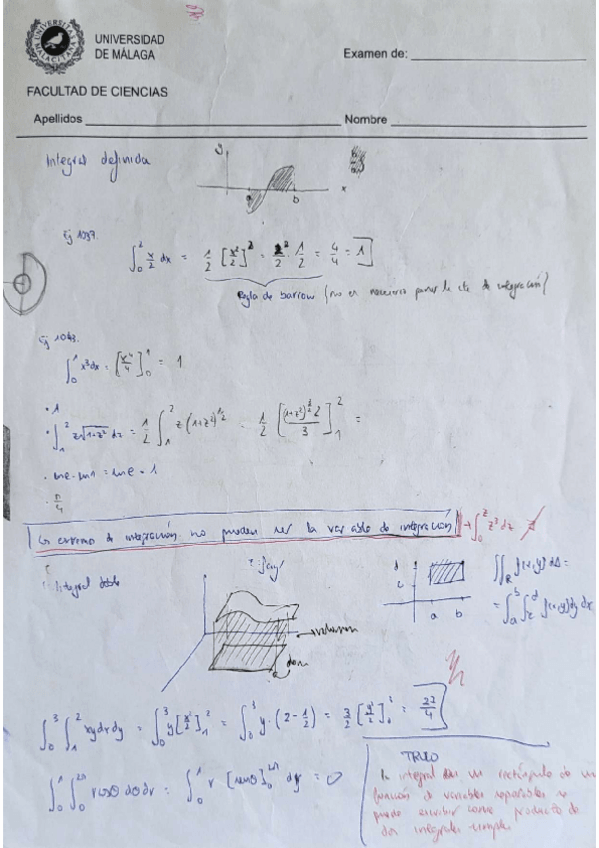 UNIVERSIDAD
DE MÁLAGA
UNIVERSITAS MALACITANA
Examen de:
FACULTAD DE CIENCIAS
Apellidos Nombre
Integral definida
y
a b x
Ej 1037.
∫_0^2 x/2 dx = 1/2 [x²/2]^2 = 2²/2 · 1/2 = 4/4 = 1
Regla de barrow (no es necesario poner la cte de integración)
Ej 1043.
∫_0^1 x³dx = [x⁴/4]_0^1 = 1
· 1
· ∫_1^2 z√(1+z²) dz = 1/2 ∫_1^2 z(1+z²)^(1/2) = 1/2 [(1+z²)^(3/2) 2/3]_1^2 =
· ln e - ln 1 = ln e = 1
· π/4
extremo de integración no pueden ser la variable de integración → ∫_0^z z³ dz
Integral doble
volumen
dom
d
c
a b
∬_R f(x,y) dA =
= ∫_a^b ∫_c^d f(x,y) dy dx
∫_0^3 ∫_1^2 xy dx dy = ∫_0^3 y[x²/2]_1^2 = ∫_0^3 y·(2-1/2) = 3/2 [y²/2]_0^3 = 27/4
∫_0^1 ∫_0^2π r cosθ dθ dr = ∫_0^1 r [senθ]_0^2π dr = 0
TRUCO
la integral en un rectángulo de una
función de variables separables se
puede escribir como producto de
dos integrales simples